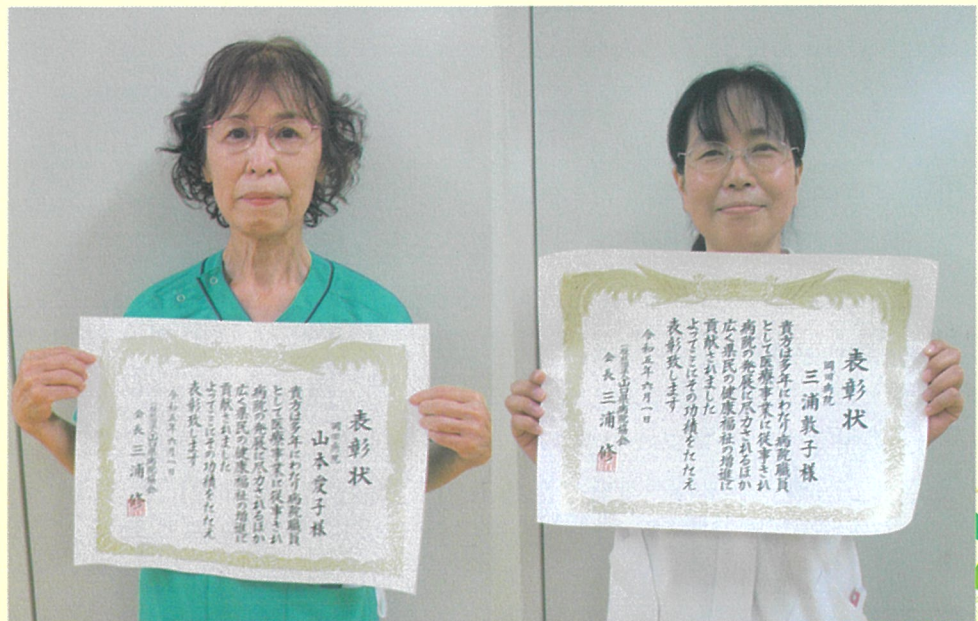 表彰状
岡田病院
山本愛子様
貴方は多年にわたり病院職員
として医療事業に従事され
病院の発展に尽力されるほか
広く県民の健康福祉の増進に
貢献されました
よってここにその功績をたたえ
表彰致します
令和五年六月一日
一般社団法人山口県病院協会
会長 三浦 修
表彰状
岡田病院
三浦敦子様
貴方は多年にわたり病院職員
として医療事業に従事され
病院の発展に尽力されるほか
広く県民の健康福祉の増進に
貢献されました
よってここにその功績をたたえ
表彰致します
令和五年六月一日
一般社団法人山口県病院協会
会長 三浦 修